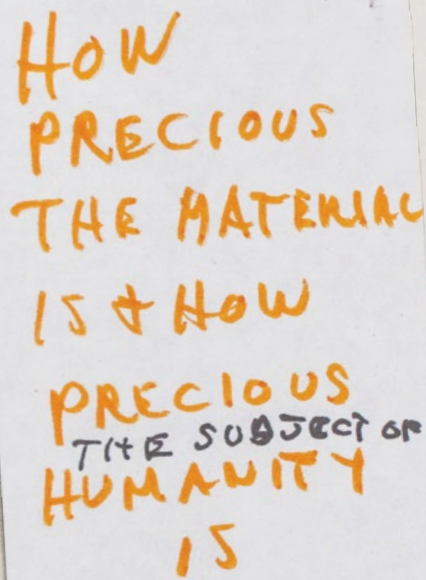 HOW
PRECIOUS
THE MATERIAL
IS & HOW
PRECIOUS
THE SUBJECT OF
HUMANITY
IS